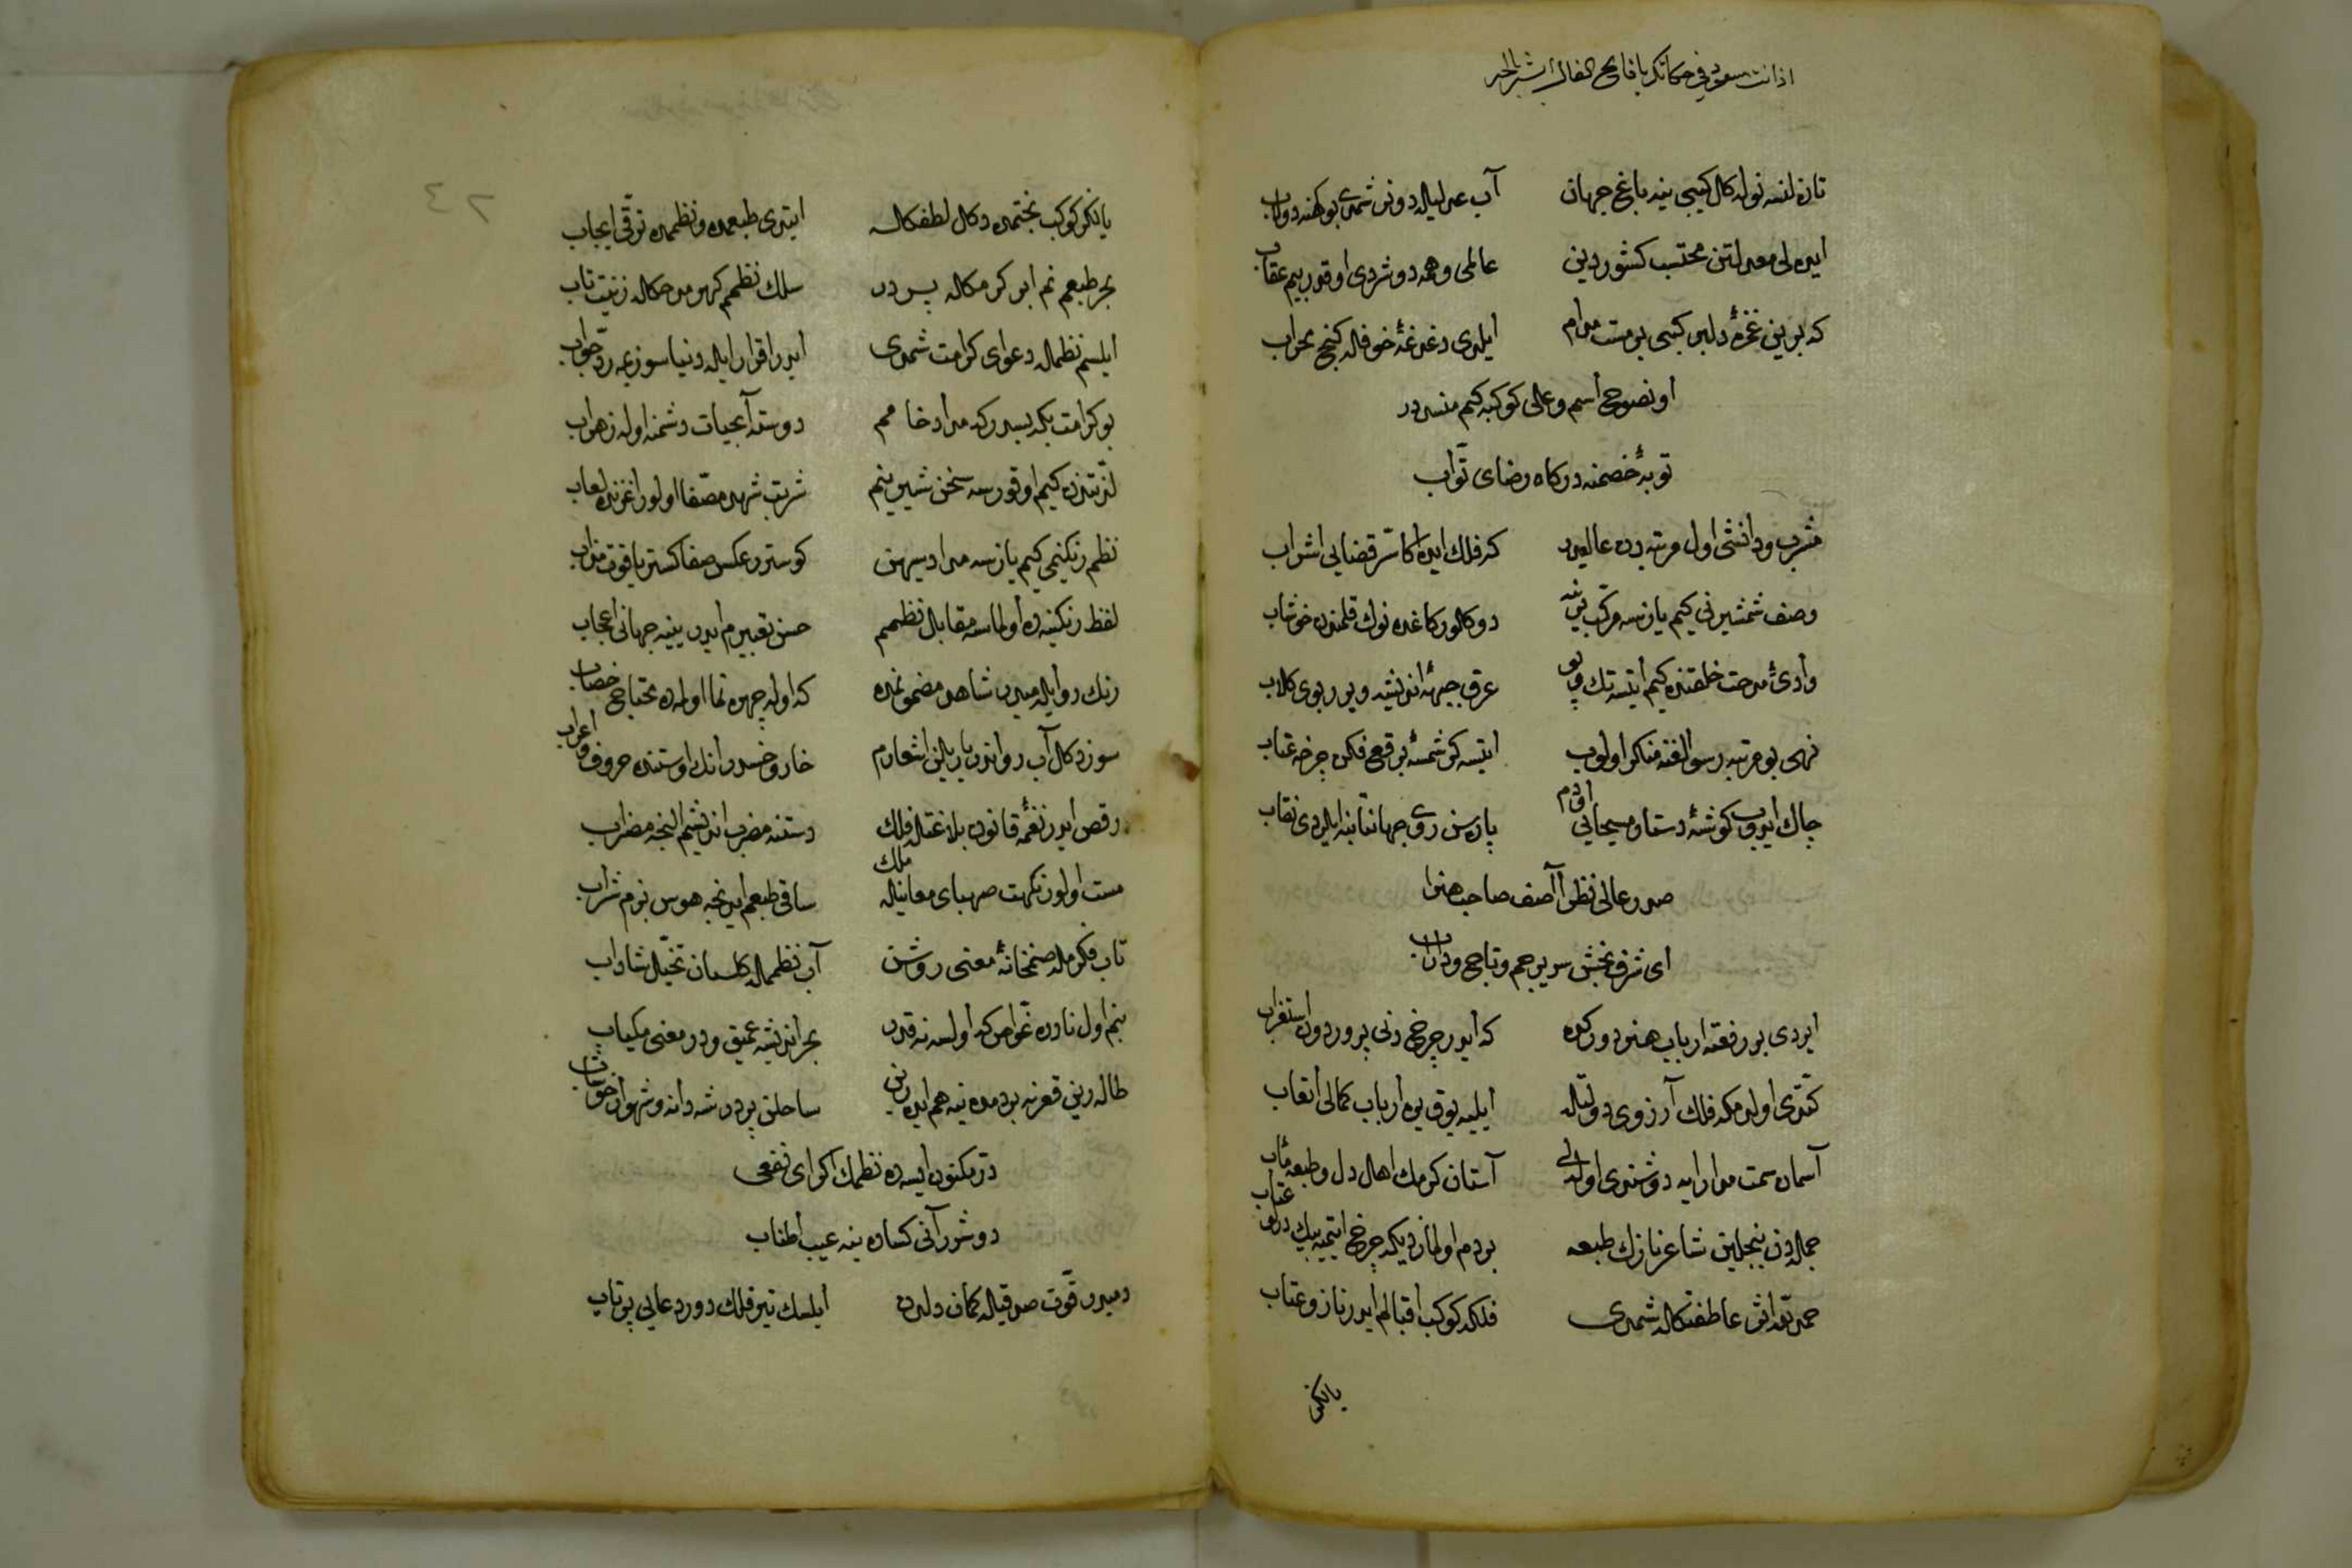 تازه لنسه نوله کال کیبی ینه باغ جهان آب عدلیله دونر شمدی بو کهنه دولاب
ایده لی معدلتن محتسب کشور دین عالمی وهمه دوشردی اوقدر بیم عقاب
که برین غمزهٔ دلبر کیبی بر مست مدام ایلدی دغدغهٔ خوفله کنج محراب
او نصوح اسم و عالی کوکبه کیم منسدر
توبهٔ خصمنه درکاه رضای توّاب
مشرب و دانشی اول مرتبه ده عالیدر که فلک ایده اکا سرّ قضایی اشراب
وصف شمشیرنی کیم یازسه مرکّب یرینه دوکالور کاغده نوک قلمندن خوناب
وادیٔ مدحت خلقنده کیم ایتسه تک و پو عرق جبههٔ اندیشه ویرر بوی کلاب
نهی بو مرتبه رسوالغنه منکر اولوب ایتسه کر شمسهٔ برقع فکن چرخه عتاب
چاک ایدوب کوشهٔ دستار مسیحایی اودم پاره سن روی جهانتابنه ایلردی نقاب
صدر عالی نظرا آصف صاحب هنرا
ای شرف بخش سریر جم و تاج و داراب
ایردی بر رفعته ارباب هنر دورکده که ایدر چرخ دنی پرور دون استغراب
کتدی اولدمکه فلک آرزوی دولتله ایلیه یوق یره ارباب کمالی اتعاب
آسمان سمت مدارایه دوشندی اوله لی آستان کرمک اهل دل و طبعه مآب
جمله دن بنجلین شاعر نازک طبعه بر دم اولماز دیکه چرخ ایتمیه بیک درلو عتاب
حمد لله اثر عاطفتکله شمدی فلکه کوکب اقبالم ایدر ناز و عتاب
یالکز
یالکز کوکب بختمده دکل لطفکله ایتدی طبعمده و نظممده ترقّی ایجاب
بحر طبعم نم ابر کرمکله پر در سلک نظمم کهر مدحکله زینت تاب
ایلسم نظمله دعوای کرامت شمدی ایدر اقرار ایله دنیا سوزیمه ردّ جواب
بو کرامت بکه بسدر که مداد خامم دوسته آبحیات دشمنه اوله زهراب
لذّتندن کیم اوقورسه سخن شیرینم شربت شهد مصفّا اولور اغزنده لعاب
نظم رنکینمی کیم یازسه مداد سیهن کوسترر عکس صفا کستر یاقوت مذاب
لفظ رنکینده اولماسه مقابل نظمم حسن تعبیرم ایدر ینه جهانی اعجاب
رنک رو ایله میدر شاهد مضمونمده که اوله چهره نما اولمده محتاج خضاب
سوزد کل آب رواندر یا بالین اشعارم خار و خسدر انک اوستنده حروف و اعراب
رقص ایدر نغمهٔ قانون بلاغتله فلک دستنه مضرب اندیشم النجه مضراب
مست اولور نکهت صهبای معانیله ملک ساقی طبعم ایدنجه هوس بزم شراب
تاب فکرمله صنمخانهٔ معنی روشن آب نظممله کلستان تخیّل شاداب
بنم اول نادره غوّاص که اولسه نه قدر بحر اندیشه عمیق و در معنی کمیاب
طاله رین قعرنه بر دمده ینه هم ایده رین ساحلن پر در شه دانه و شهوار خوشاب
درّ مکنون ایسه ده نظمک اکر ای نفعی
دوشرر آنی کساده ینه عیب اطناب
دمیدر قوّت صدقیله کمان دلدن ایلسک تیر فلک دور دعایی پرتاب